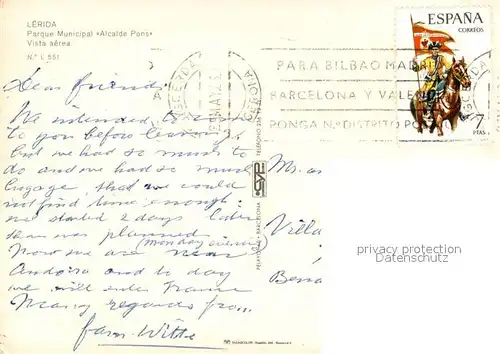 LÉRIDA
Parque Municipal «Alcalde Pons»
Vista aérea
N.º L 551
ESPAÑA
CORREOS
7
PTAS
PARA BILBAO MADRI
BARCELONA Y VALEN
PONGA N.º DISTRITO PO
Dear friends!
We intended to
to you before leaving
but we had so much to
do and we had so much
luggage, that we could
not find time enough.
we started 2 days later
than was planned.
(Monday evening)
Now we are near
Andorra and to day
we will enter France
Many regards from
fam. Witte
Mr. a
Villa
BARCELONA
privacy protection
ansichtskarten-center.de